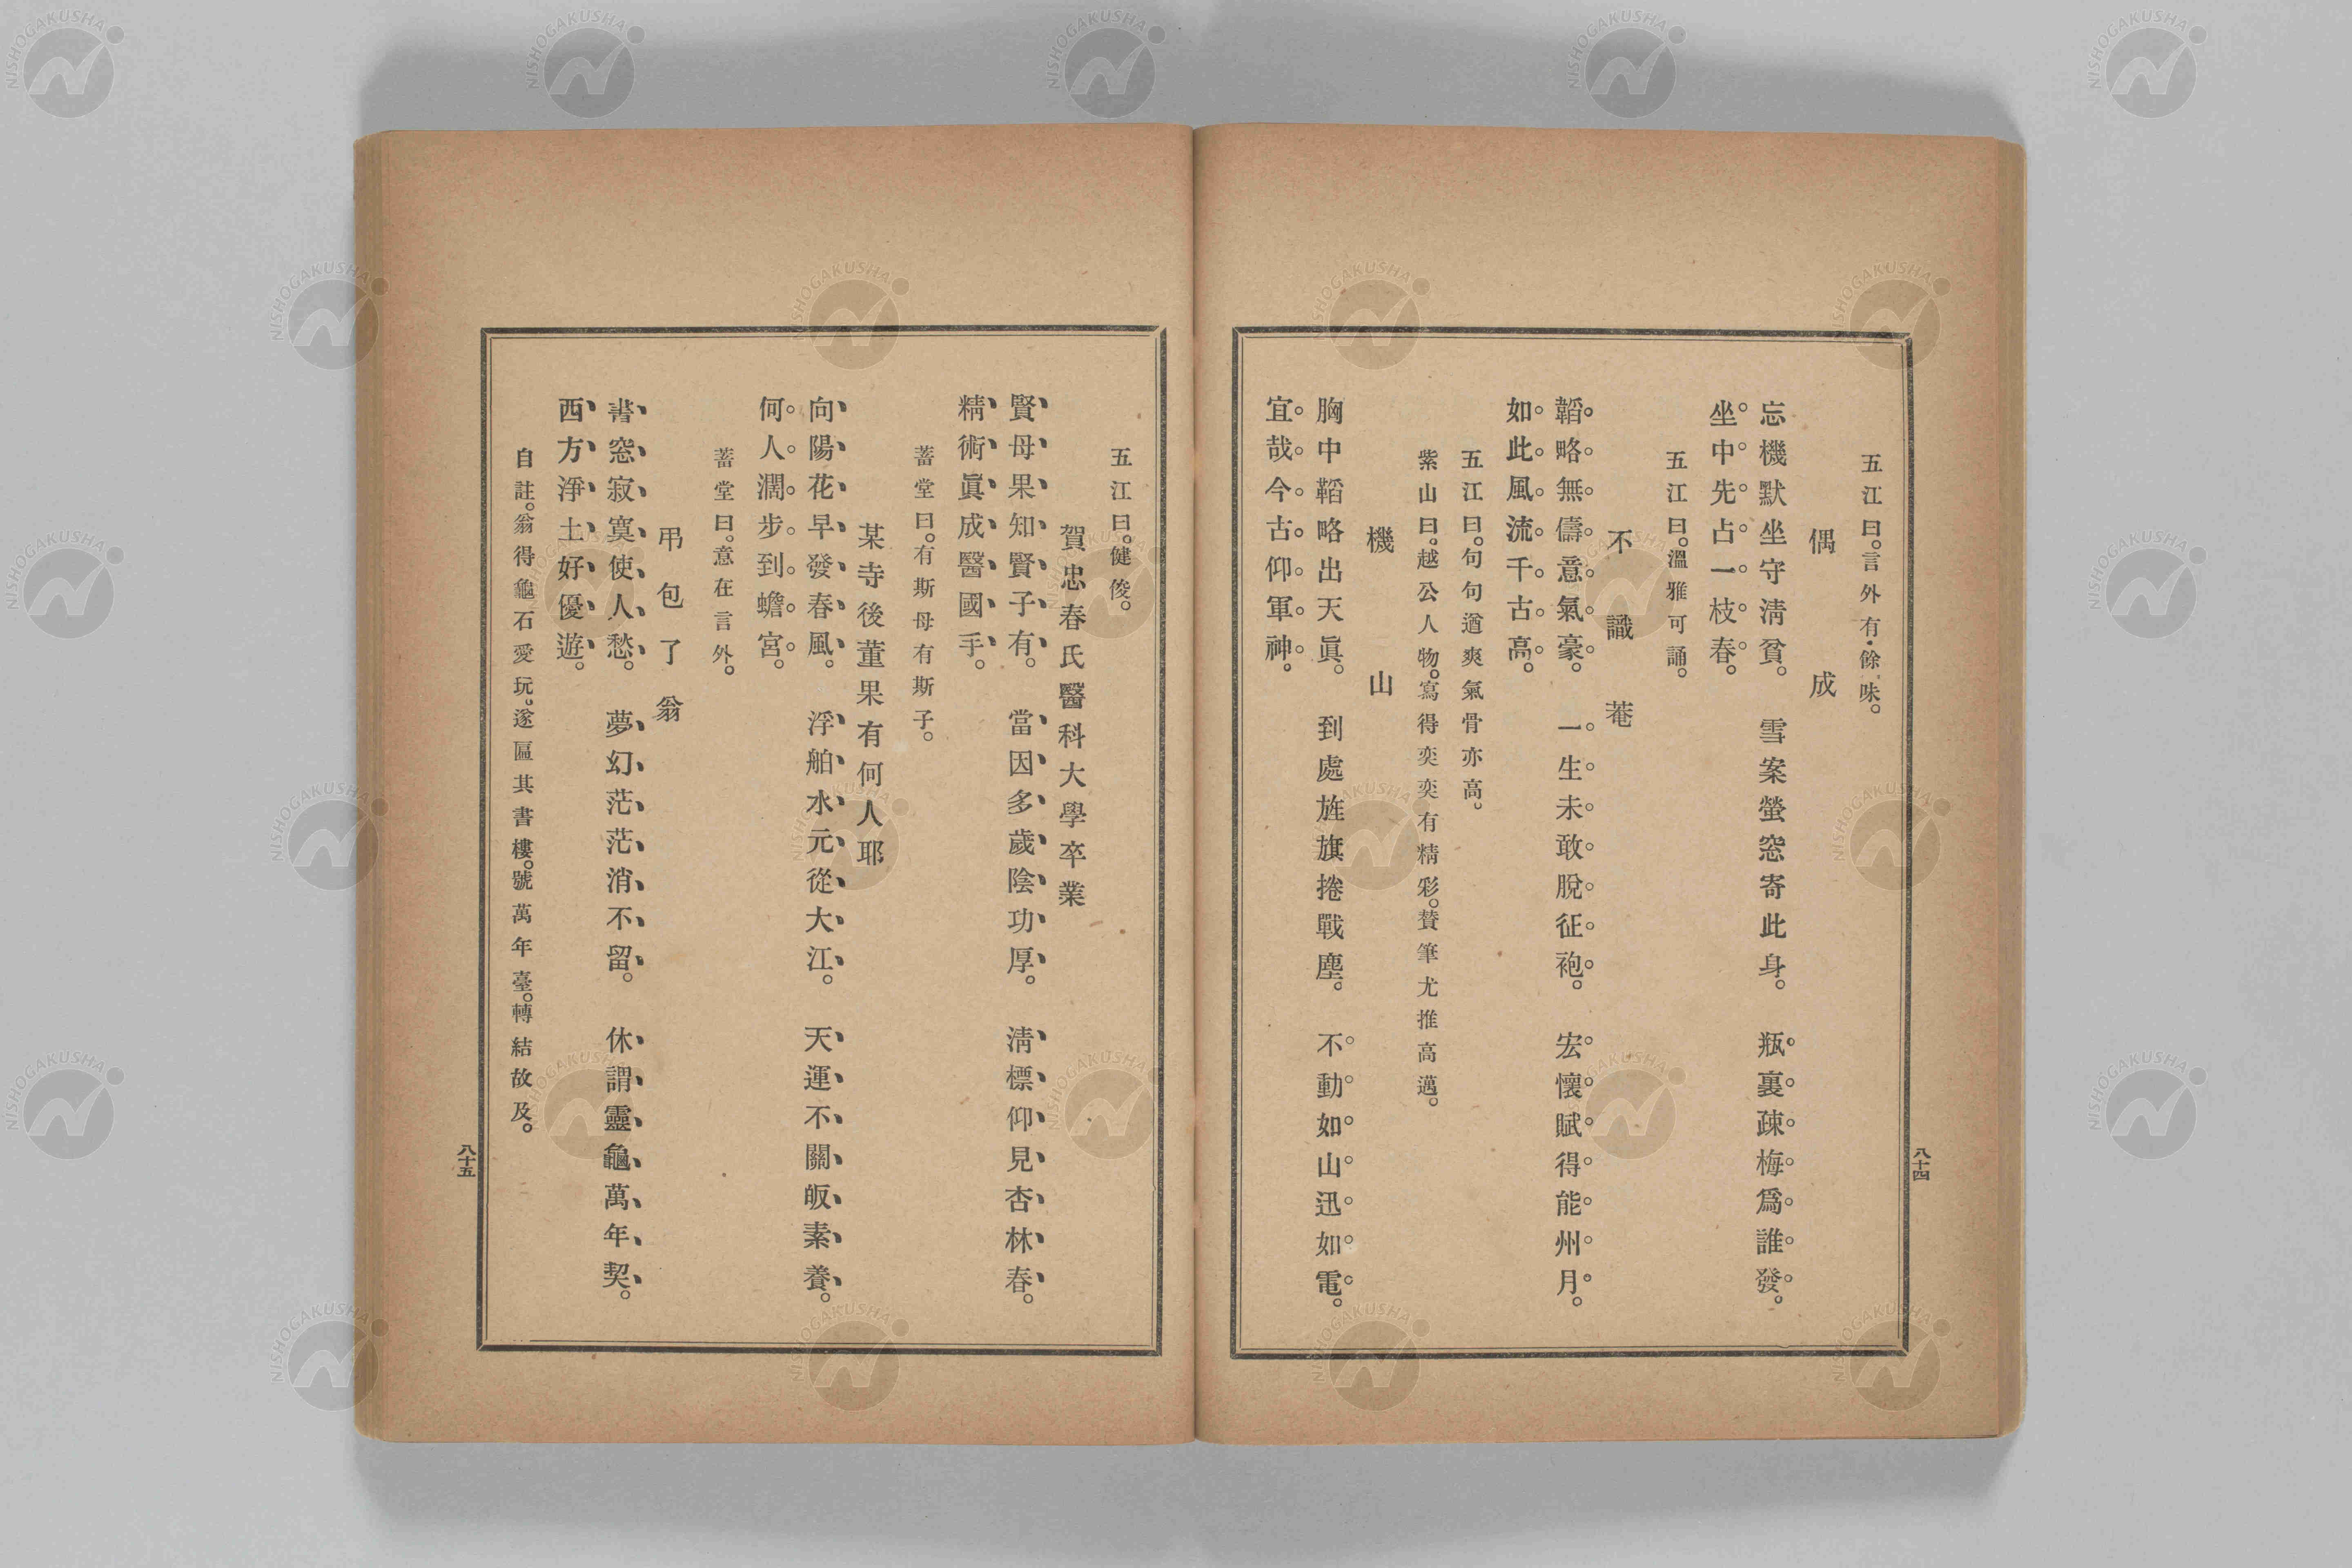 五江曰。言外有餘味。
偶成
忘機默坐守淸貧。雪案螢窓寄此身。瓶裏疎梅爲誰發。
坐中先占一枝春。
五江曰。溫雅可誦。
不識菴
韜略無儔意氣豪。一生未敢脫征袍。宏懷賦得能州月。
如此風流千古高。
五江曰。句句遒爽氣骨亦高。
紫山曰。越公人物。寫得奕奕有精彩。贊筆尤推高邁。
機山
胸中韜略出天眞。到處旌旗捲戰塵。不動如山迅如電。
宜哉今古仰軍神。
八十四
五江曰。健俊。
賀忠春氏醫科大學卒業
賢母果知賢子有。當因多歲陰功厚。淸標仰見杏林春。
精術眞成醫國手。
蓄堂曰。有斯母有斯子。
某寺後董果有何人耶
向陽花早發春風。浮舶水元從大江。天運不關皈素養。
何人濶步到蟾宮。
蓄堂曰。意在言外。
弔包了翁
書窓寂寞使人愁。夢幻茫茫消不留。休謂靈龜萬年契。
西方淨土好優遊。
自註。翁得龜石愛玩。遂匾其書樓。號萬年臺。轉結故及。
八十五
NISHOGAKUSHA